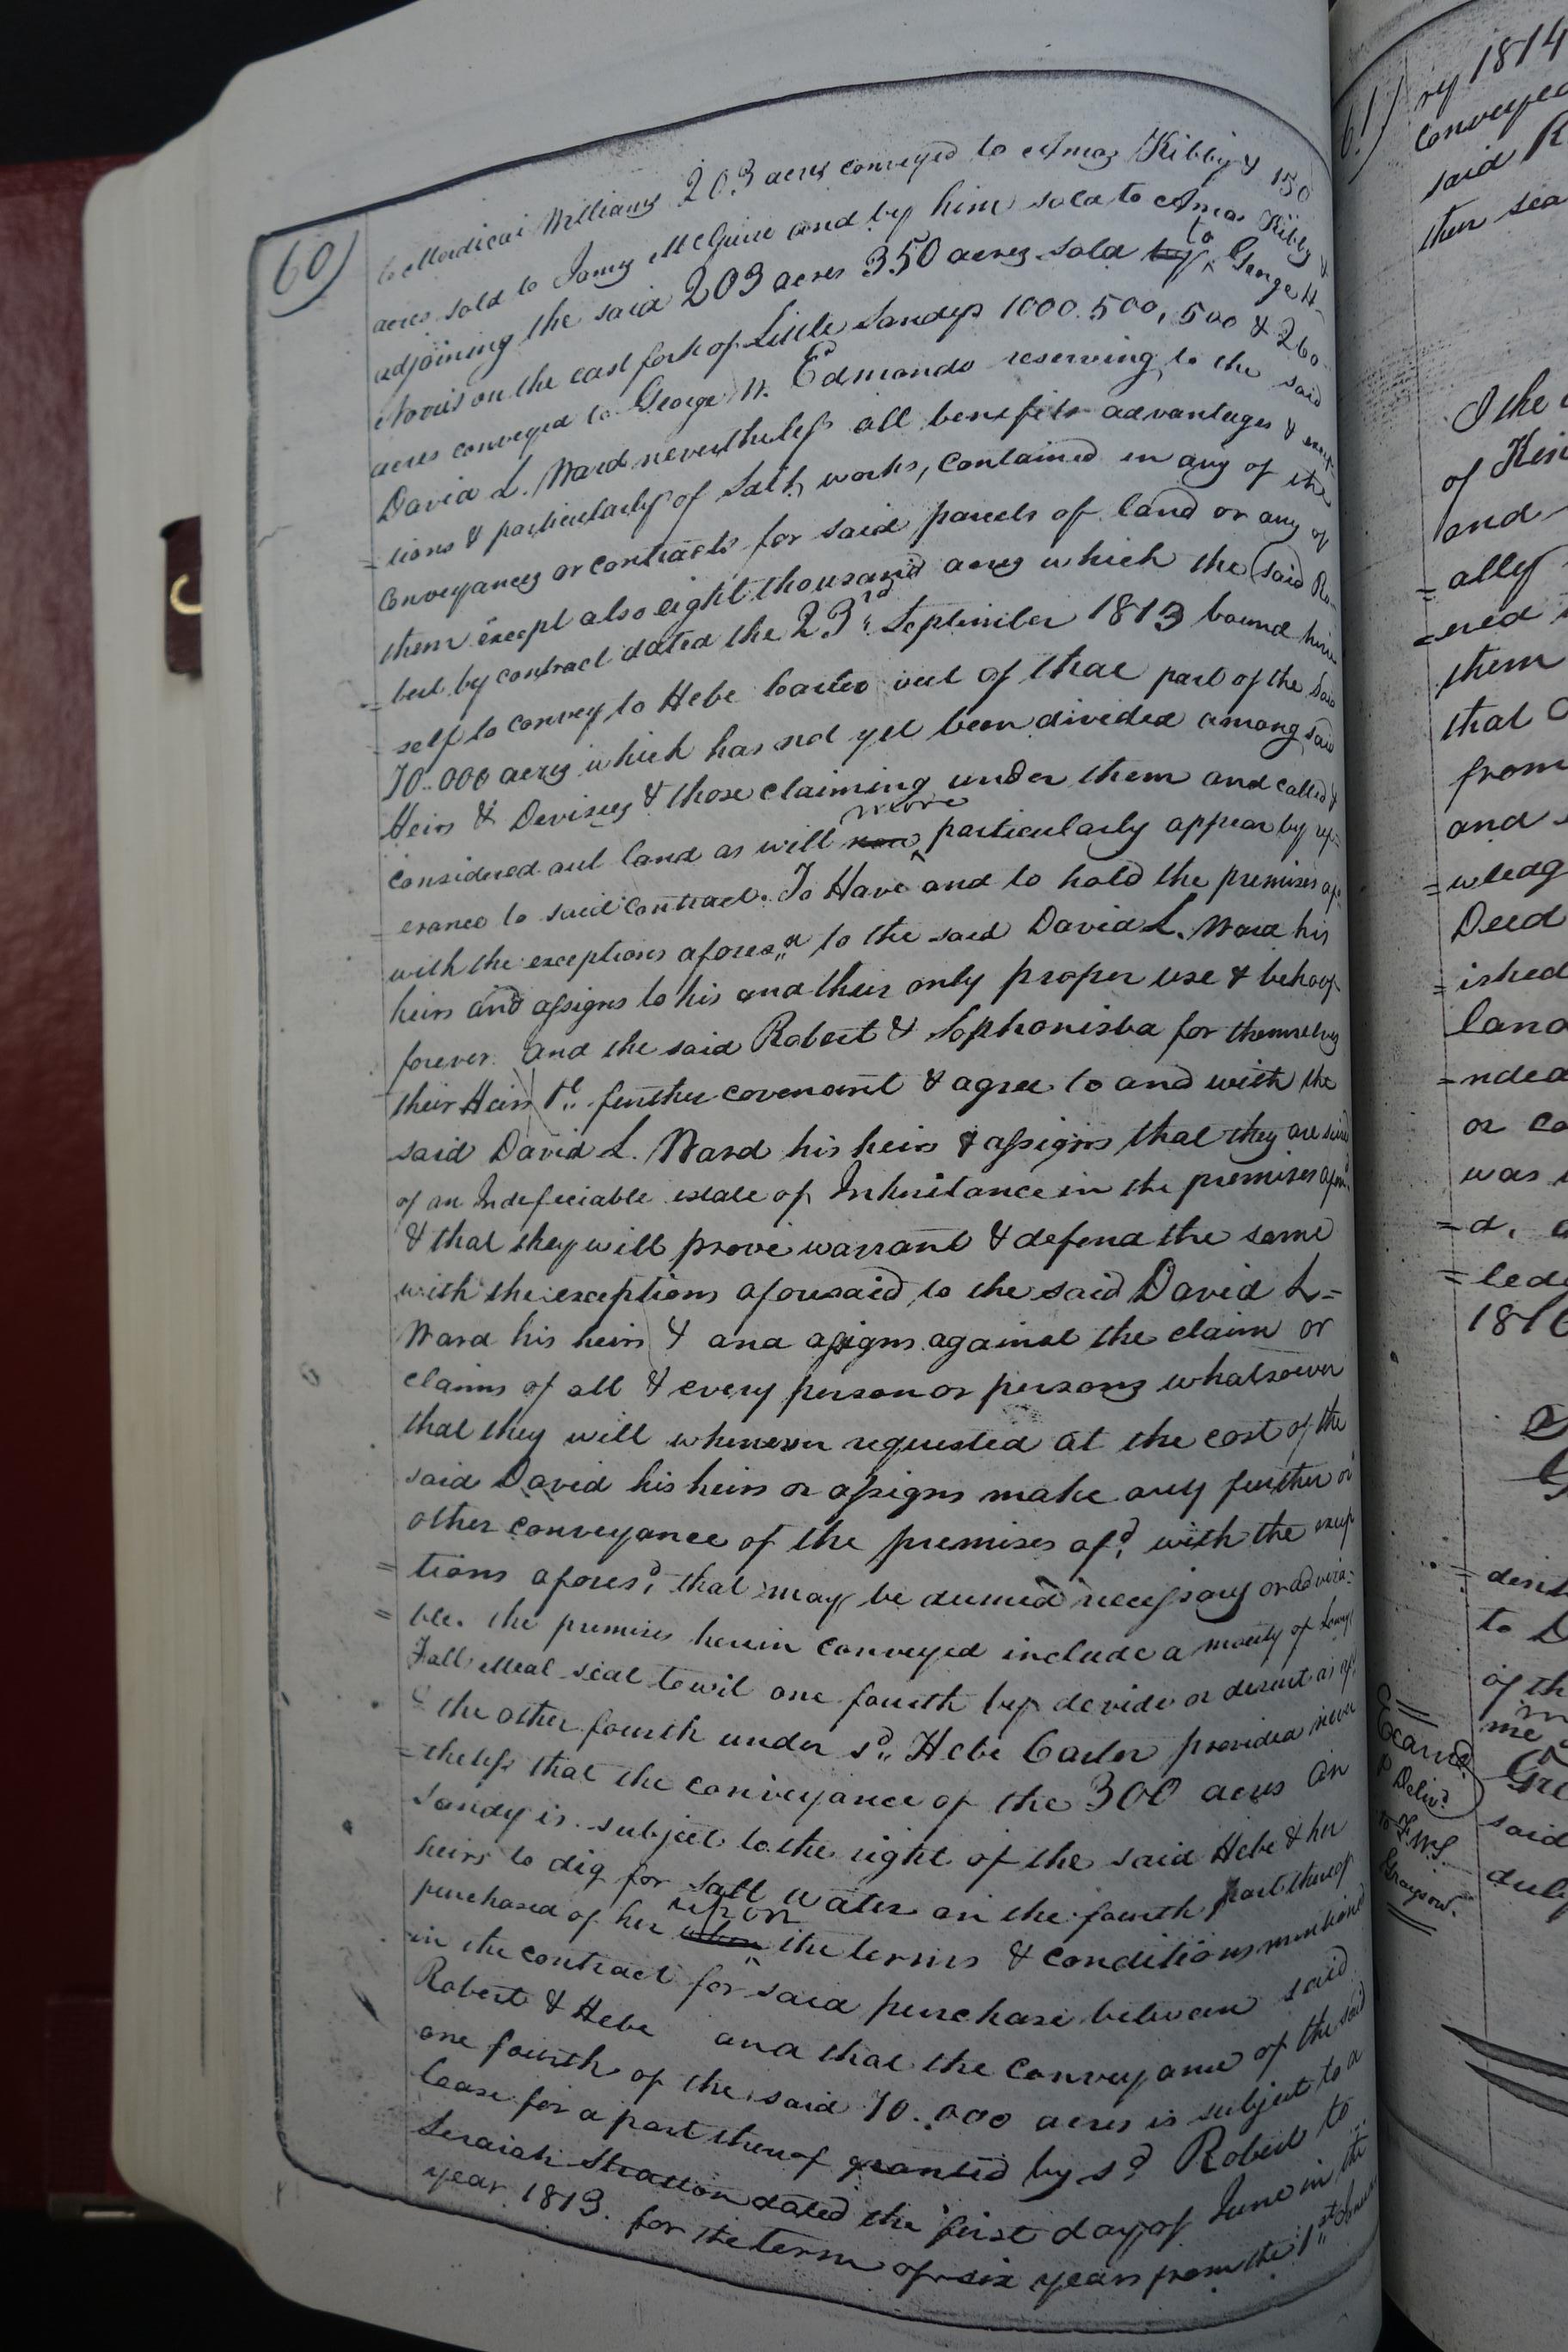 60)
to Mordicai Williams 203 acres conveyed to Amos Kibby & 150
acres sold to James McGuire and by him sold to Amos Kibby &
adjoining the said 203 acres 350 acres sold by to George H.
Norris on the east fork of Little Sandys 1000. 500, 500 & 260
acres conveyed to George N. Edmonds reserving to the said
David L. Ward nevertheless all benefits advantages &
=tions & particularly of Salt works, contained in any of the
conveyances or contracts for said parcels of land or any of
them except also eight thousand acres which the said Ro-
=bert by contract dated the 23rd September 1813 bound him
=self to convey to Hebe Carter out of that part of the said
70.000 acres which has not yet been divided among said
Heirs & Devisees & those claiming under them and called &
considered out land as will more particularly appear by ref-
=erance to said contract. To Have and to hold the premises af.
with the exceptions afores,,d to the said David L. Ward his
heirs and assigns to his and their only proper use & behoof
forever. And the said Robert & Sophonisba for themselves
their Heirs &c. further covenant & agree to and with the
said David L. Ward his heirs & assigns that they are seized
of an Indeficiable estate of Inheritance in the premises afore
& that they will prove warrant & defend the same
with the exceptions aforesaid to the said David L=
Ward his heirs & and assigns against the claim or
claims of all & every person or persons whatsoever
that they will whenever requested at the cost of the
said David his heirs or assigns make any further or
other conveyance of the premises afd. with the excep
=tions afores,d that may be deemed necessary or advisa-
=ble. the premises herein conveyed include a moiety of
Fall Meal seat towit one fourth by devide or desent as af.
& the other fourth under sd,, Hebe Carter provided never
=theless that the conveyance of the 300 acres on
Sandy is subject to the right of the said Hebe & her
heirs to dig for salt water on the fourth part thereof
purchased of her upon the terms & conditions mentioned
in the contract for said purchase between said
Robert & Hebe and that the conveyance of the said
one fourth of the said 70.000 acres is subject to a
lease for a part thereof granted by sd Robert to
Seraiah Stratton dated the first day of June in the
year 1813. for the term of six years from the 1st
61)
ry 1814
conveyed
said R
then sea
I the
of Ken
and
=ally
=ered
them
that
from
and
=wledg
Deed
=ished
land
=ndea
or co
was
=d,
=ledg
181
=dent
to D
of th
me
Gre
said
duly
Examd.
& Deliv.d
to F.W.S.
Grayson.